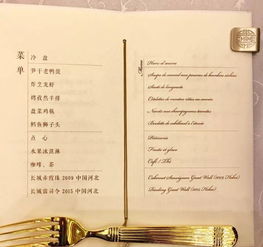 菜单
冷 盘
笋干老鸭煲
炸烹龙虾
烤孜然羊排
盘菜鸡枞
鳕鱼狮子头
点 心
水果冰淇淋
咖啡、茶
长城赤霞珠 2009 中国河北
长城雷司令 2015 中国河北
Menu
Hors d'œuvre
Soupe de canard aux pousses de bambou séchées
Sauté de langouste
Côtelettes de mouton rôties au cumin
Navets aux champignons termites
Boulette de cabillaud à l'étuvée
Pâtisserie
Fruits et glace
Café / Thé
Cabernet Sauvignon Great Wall 2009, Hebei
Riesling Great Wall 2015, Hebei